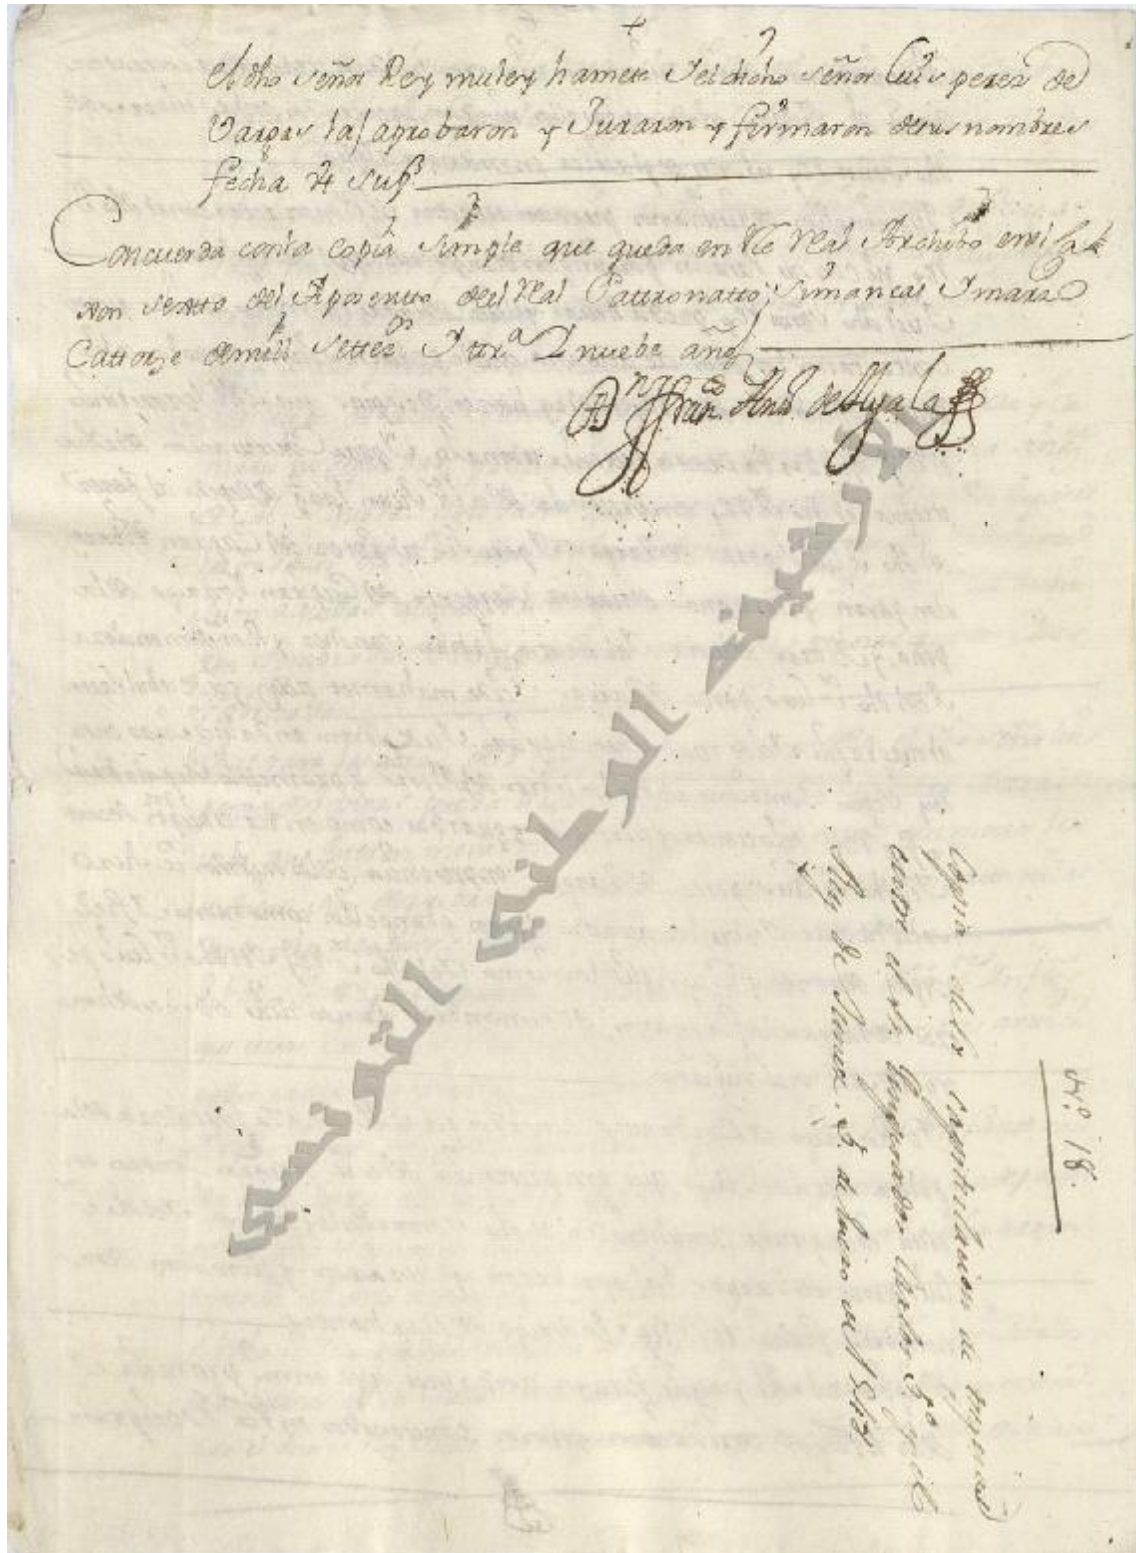 +
el dho señor Rey muley hamete y el dicho señor Luis perez de
Vargas las aprobaron y Juraron y firmaron de sus nombres
fecha ut supª
Concuerda con la copia simple que queda en este Real Archibo en el Caxon
sextto del Aposentto del Real Pattronatto; Simancas y marzo
Cattorze de mill settezos y ttrª y nuebe años
Dn Franco Anttº de Ayala
Nº 18.
Copia de la capitulacion de
entre el sr. Emperador Carlos 5º y el
Rey de Tunez. 5. de Enero de 1542
الأرشيف الوطني التونسي